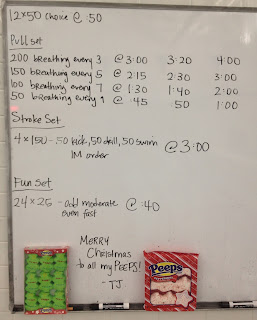 12x50 choice @ :50
Pull set
200 breathing every 3 @ 3:00 3:20 4:00
150 breathing every 5 @ 2:15 2:30 3:00
100 breathing every 7 @ 1:30 1:40 2:00
50 breathing every 9 @ :45 :50 1:00
Stroke Set
4 x 150 - 50 kick, 50 drill, 50 swim @ 3:00
IM order
Fun Set
24 x 25 - odd moderate @ :40
even fast
MERRY
Christmas
to all my PEEPS!
- TJ
Peeps